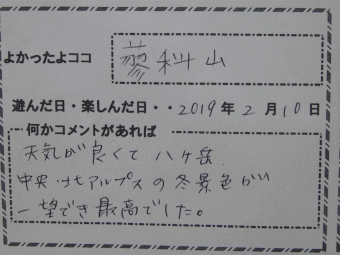 よかったよココ 蓼科山
遊んだ日・楽しんだ日・・2019年2月10日
何かコメントがあれば
天気が良くて八ヶ岳.
中央北アルプスの冬景色が
一望でき最高でした。